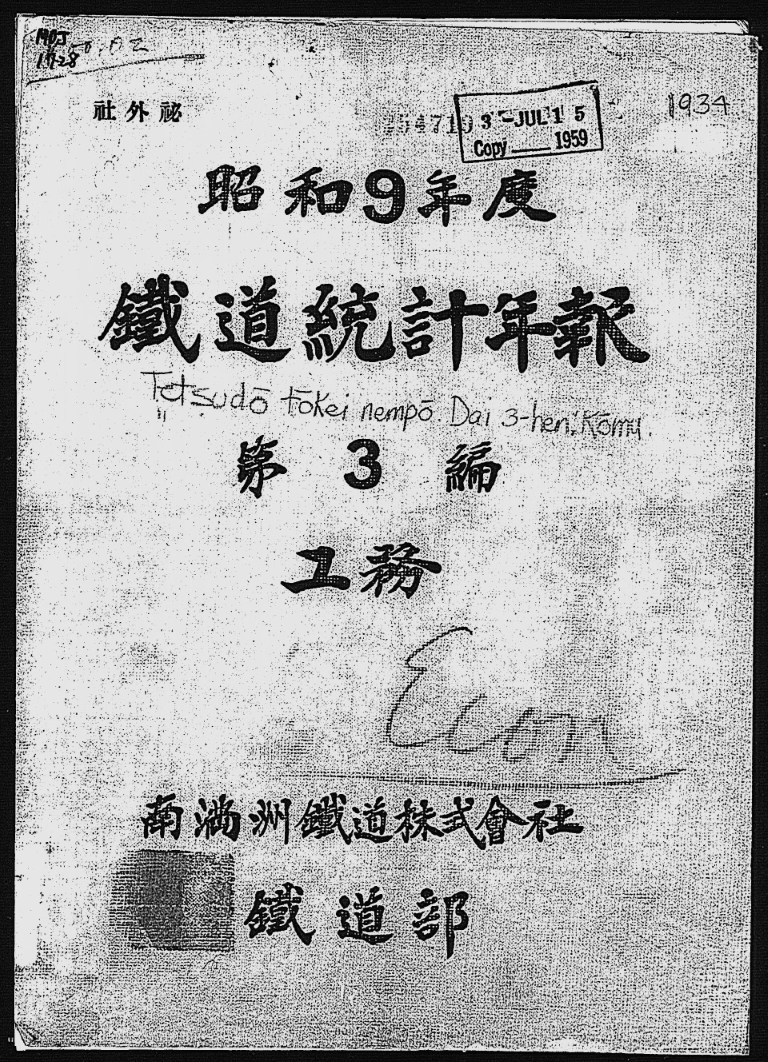 MOJ
17-28
社外祕
3 - JUL 15
Copy 1959
1934
昭和9年度
鐵道統計年報
Tetsudō tōkei nempō. Dai 3-hen: Kōmu.
第3編
工務
Econ
南滿洲鐵道株式會社
鐵道部